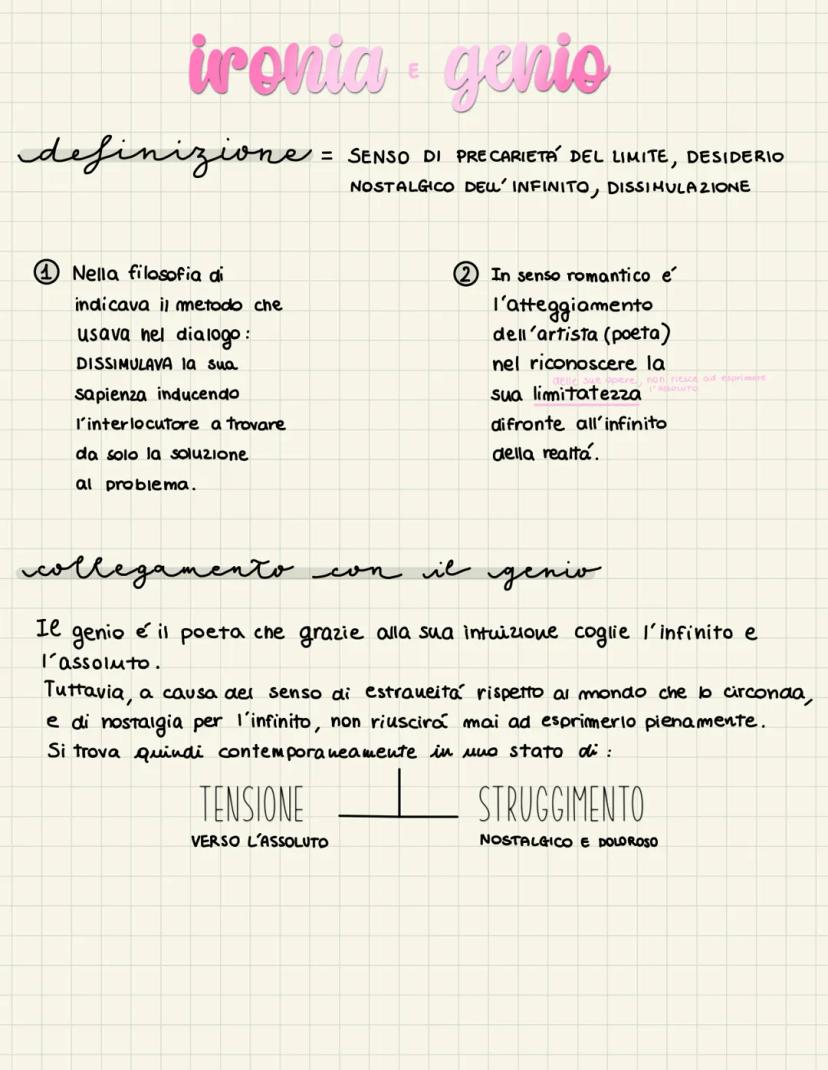 ironia E genio
definizione = SENSO DI PRECARIETÁ DEL LIMITE, DESIDERIO
NOSTALGICO DELL'INFINITO, DISSIMULAZIONE
① Nella filosofia di
indicava il metodo che
usava nel dialogo:
DISSIMULAVA la sua
sapienza inducendo
l'interlocutore a trovare
da solo la soluzione
al problema.
② In senso romantico é
l'atteggiamento
dell'artista (poeta)
nel riconoscere la
delle sue opere, non riesce ad esprimere
l'assoluto
sua limitatezza
difronte all'infinito
della realtá.
collegamento con il genio
Il genio é il poeta che grazie alla sua intuizione coglie l'infinito e
l'assoluto.
Tuttavia, a causa del senso di estraneitá rispetto al mondo che lo circonda,
e di nostalgia per l'infinito, non riuscirá mai ad esprimerlo pienamente.
Si trova quindi contemporaneamente in uno stato di:
TENSIONE STRUGGIMENTO
VERSO L'ASSOLUTO NOSTALGICO E DOLOROSO